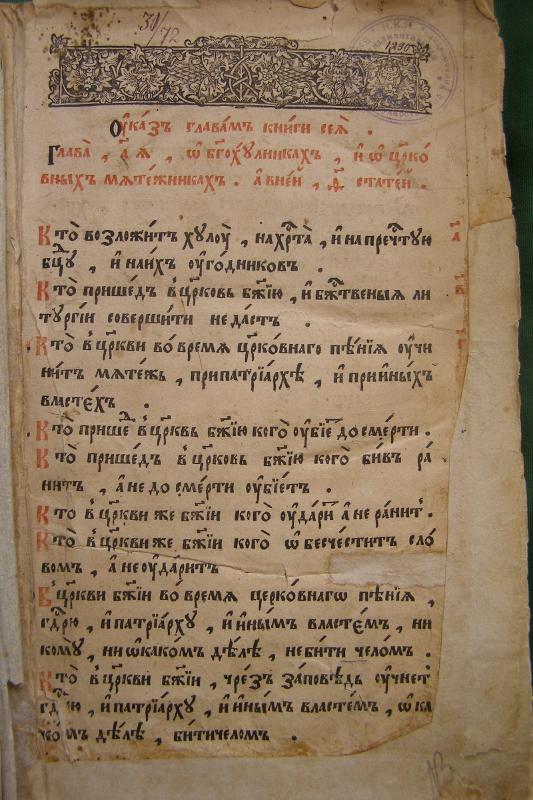 30/72
1290
Ѹ҆ка́зъ глава́мъ книги сеѧ̀ .
Глава̀ , а҃ ѧ , ѡ҆ бг҃охꙋлникахъ , и҆ ѡ҆ цр҃ко́
вныхъ мѧте́жникахъ . а в не́й , ѳ҃ стате́й .
Кто̀ возложи́тъ хꙋлоу̀ , на хрⷭ҇та̀ , и҆ на пречⷭ҇тꙋю
бцⷣꙋ , и҆ на и́хъ ѹ҆го́дниковъ .
Кто̀ прише́дъ в҆ цр҃ковь бж҃їю , и҆ бжⷭ҇твеныѧ ли
тꙋргі́и соверши́ти не да́стъ .
Кто̀ в҆ цр҃кви во́ времѧ цр҃ко́внаго пѣ́нїѧ ѹ҆чи
ни́тъ мѧте́жь , при патрїа́рхѣ , и҆ при и҆ны́хъ
власте́хъ .
Кто̀ прише́ⷣ в҆ цр҃квь бж҃їю кого̀ ѹ҆бїе́ⷮ до сме́рти .
Кто̀ прише́дъ в҆ цр҃ковь бж҃їю кого̀ би́въ ра́
нитъ , а҆ не до сме́рти ѹ҆бїе́тъ .
Кто в҆ цр҃кви же бж҃їи кого̀ ѹ҆да́риⷮ а҆ не ра́нитⸯ .
Кто̀ в҆ цр҃кви же бж҃їи кого̀ ѡ҆бесче́ститъ сло́
вомъ , а҆ не ѹ҆да́ритъ
В҆ цр҃кви бж҃їи во́ времѧ церко́внагѡ пѣ́нїѧ ,
гдⷭ҇рю , и҆ патрїа́рхꙋ , и҆ и҆ны́мъ власте́мъ , ни
комꙋ̀ , ни ѡ҆ како́мъ дѣ́лѣ , не би́ти чело́мъ .
Кто̀ в҆ цр҃кви бж҃їи , чре́зъ за́повѣдь ѹ҆чне́тъ
гдⷭ҇рю , и҆ патрїа́рхꙋ , и҆ и҆ны́мъ власте́мъ , ѡ҆ ка
ко́мъ дѣ́лѣ , би́ти чело́мъ .
а҃
в҃